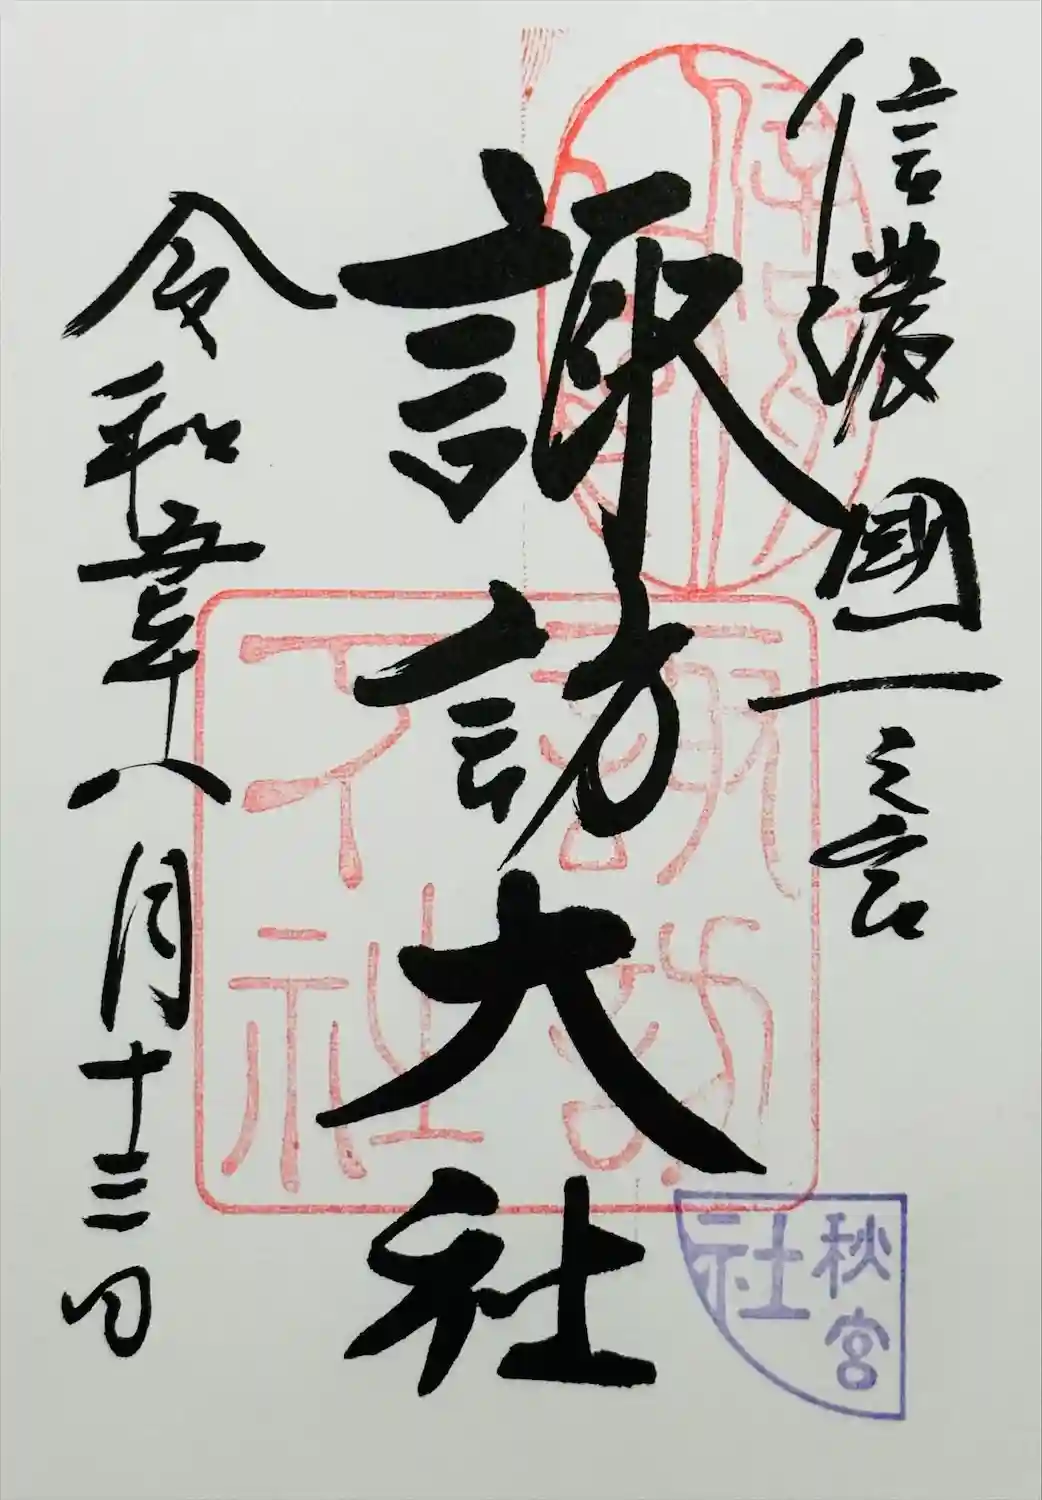 信濃國一之宮
諏訪大社
令和五年八月十三日
諏訪
下社
秋宮
社